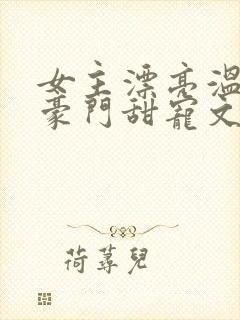 女主漂亮溫
豪門甜寵文
荷蕁兒